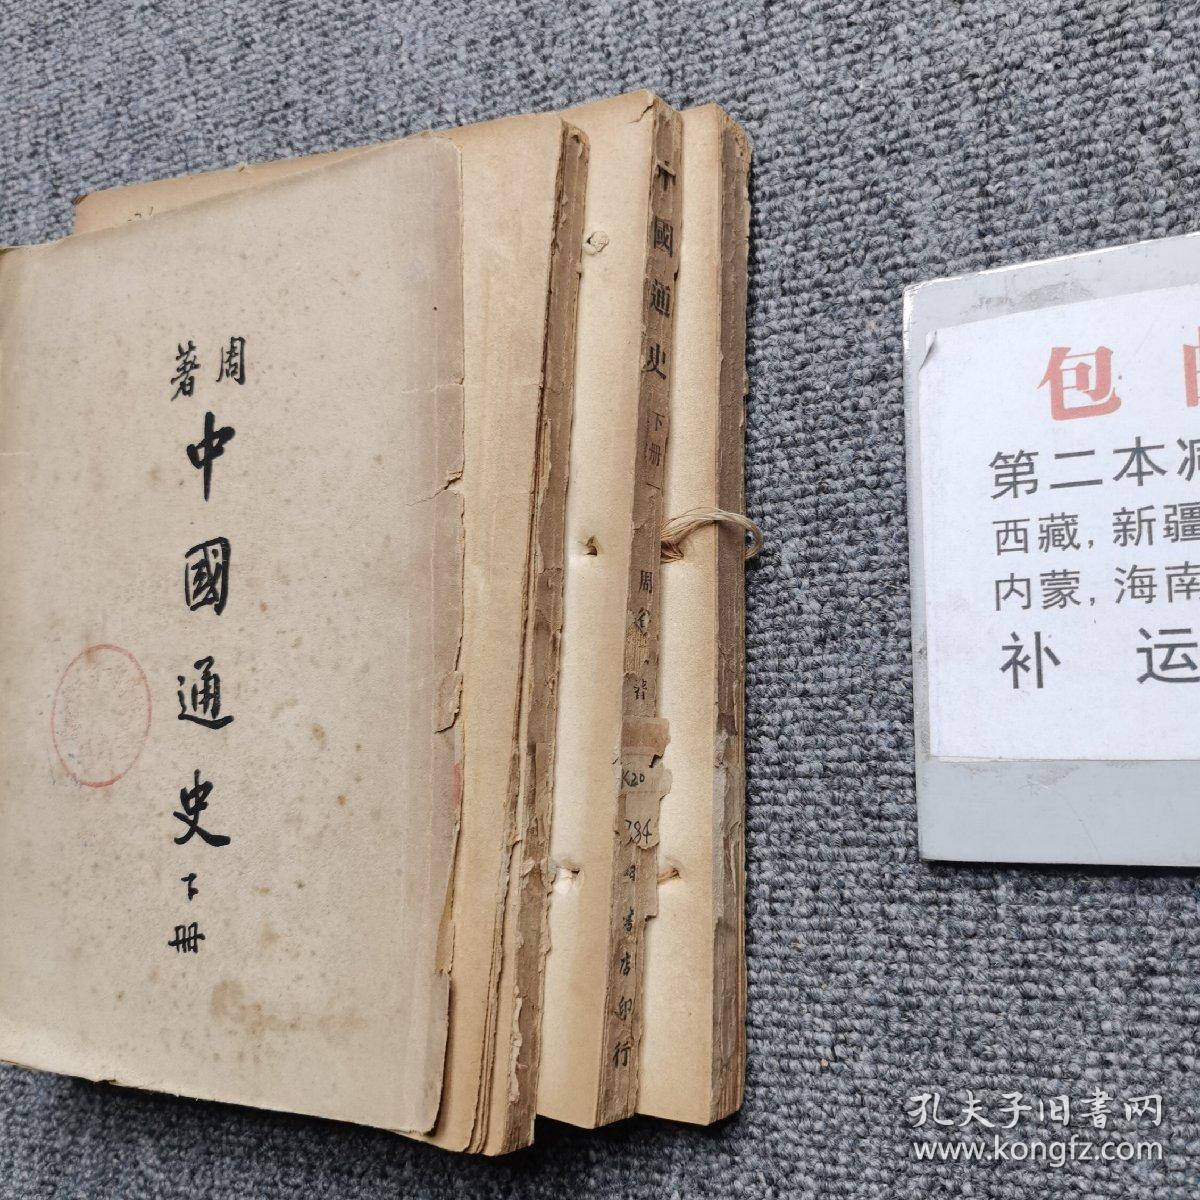 周著
中國通史
下册
國通史
下册
周
K20
784
書店印行
包
第二本减
西藏，新疆
内蒙，海南
补 运
孔夫子旧書网
www.kongfz.com